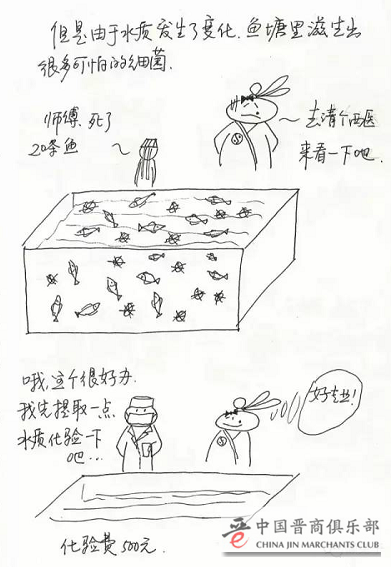 但是由于水质发生了变化.鱼塘里滋生出
很多可怕的细菌.
师缚.死了
20条鱼
去请个西医
来看一下吧.
哦,这个很好办.
我先提取一点
水质化验一下
吧...
好专业!
化验费500元.
中国晋商俱乐部
CHINA JIN MARCHANTS CLUB